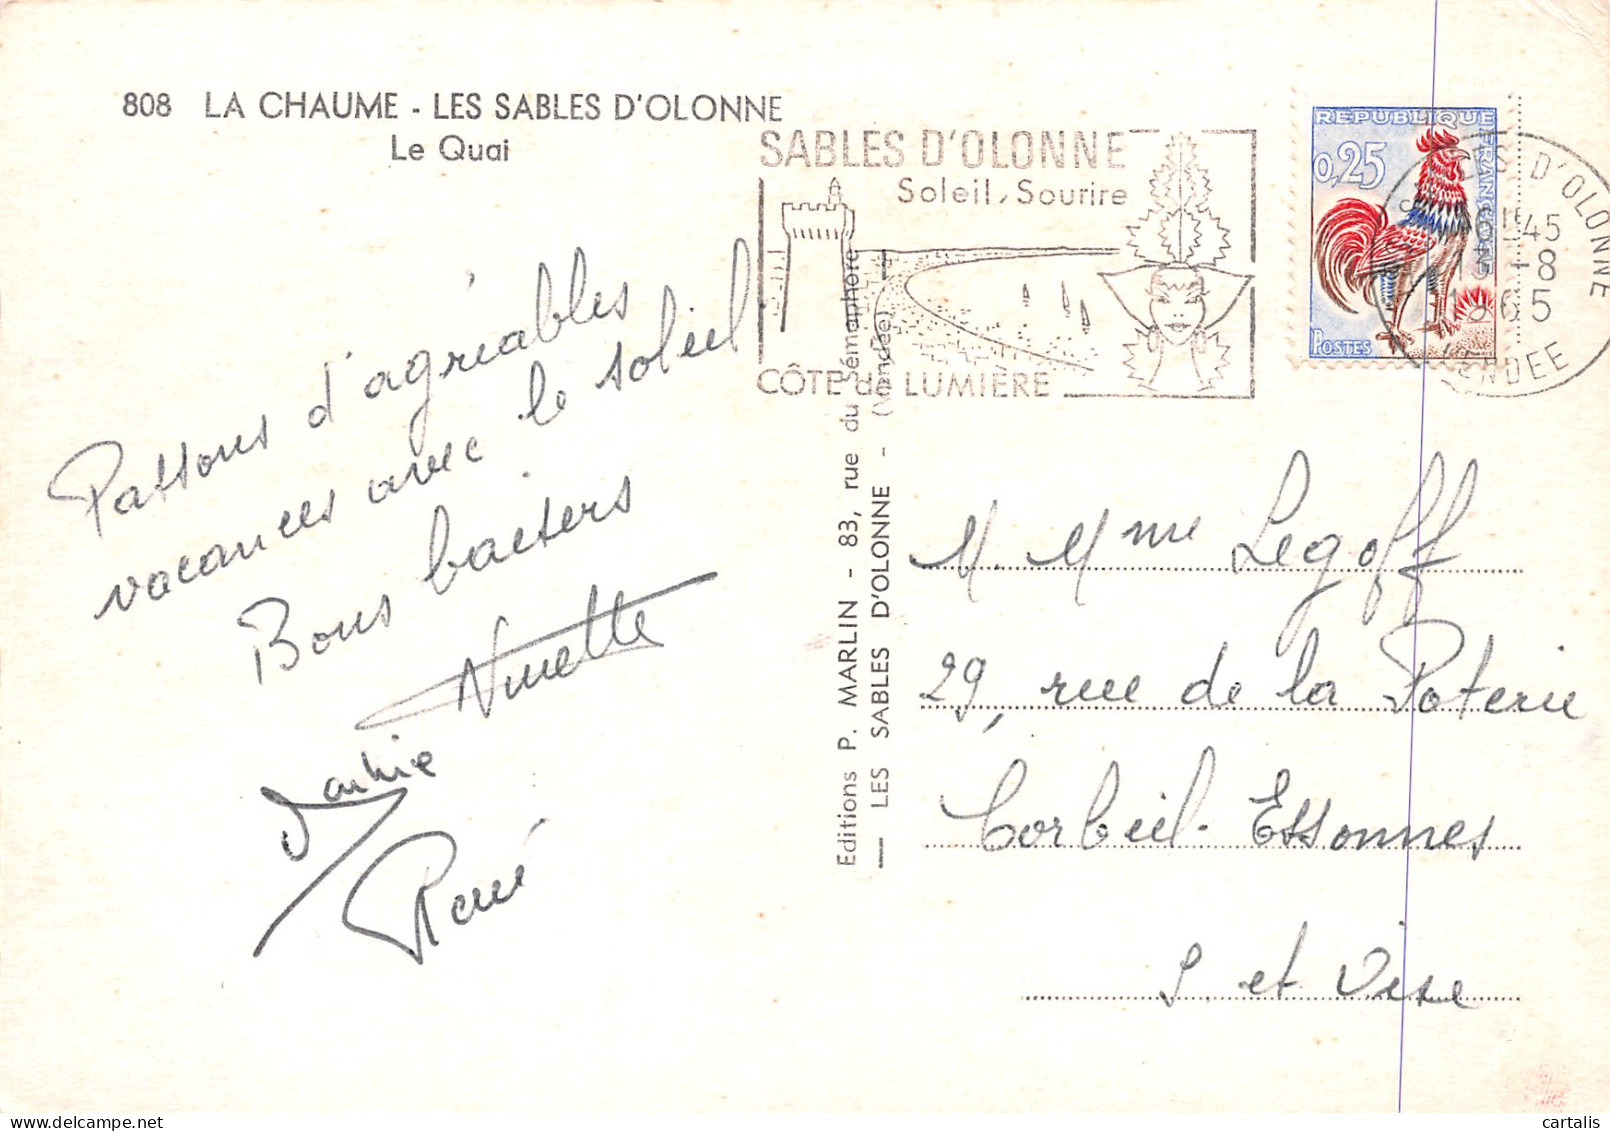 808 LA CHAUME - LES SABLES D'OLONNE
Le Quai
Passons d'agréables
vacances avec le soleil.
Bons baisers
Ninette
René
Editions P. MARLIN - 83, rue du Sémaphore
— LES SABLES D'OLONNE - (Vendée) —
SABLES D'OLONNE
Soleil, Sourire
CÔTE de LUMIÈRE
REPUBLIQUE FRANÇAISE
0,25
POSTES
LES D'OLONNE
16 H 45
13 - 8
1965
VENDEE
M. Mme Legoff
29, rue de la Poterie
Corbeil-Essonnes
S. et Oise
cartalis